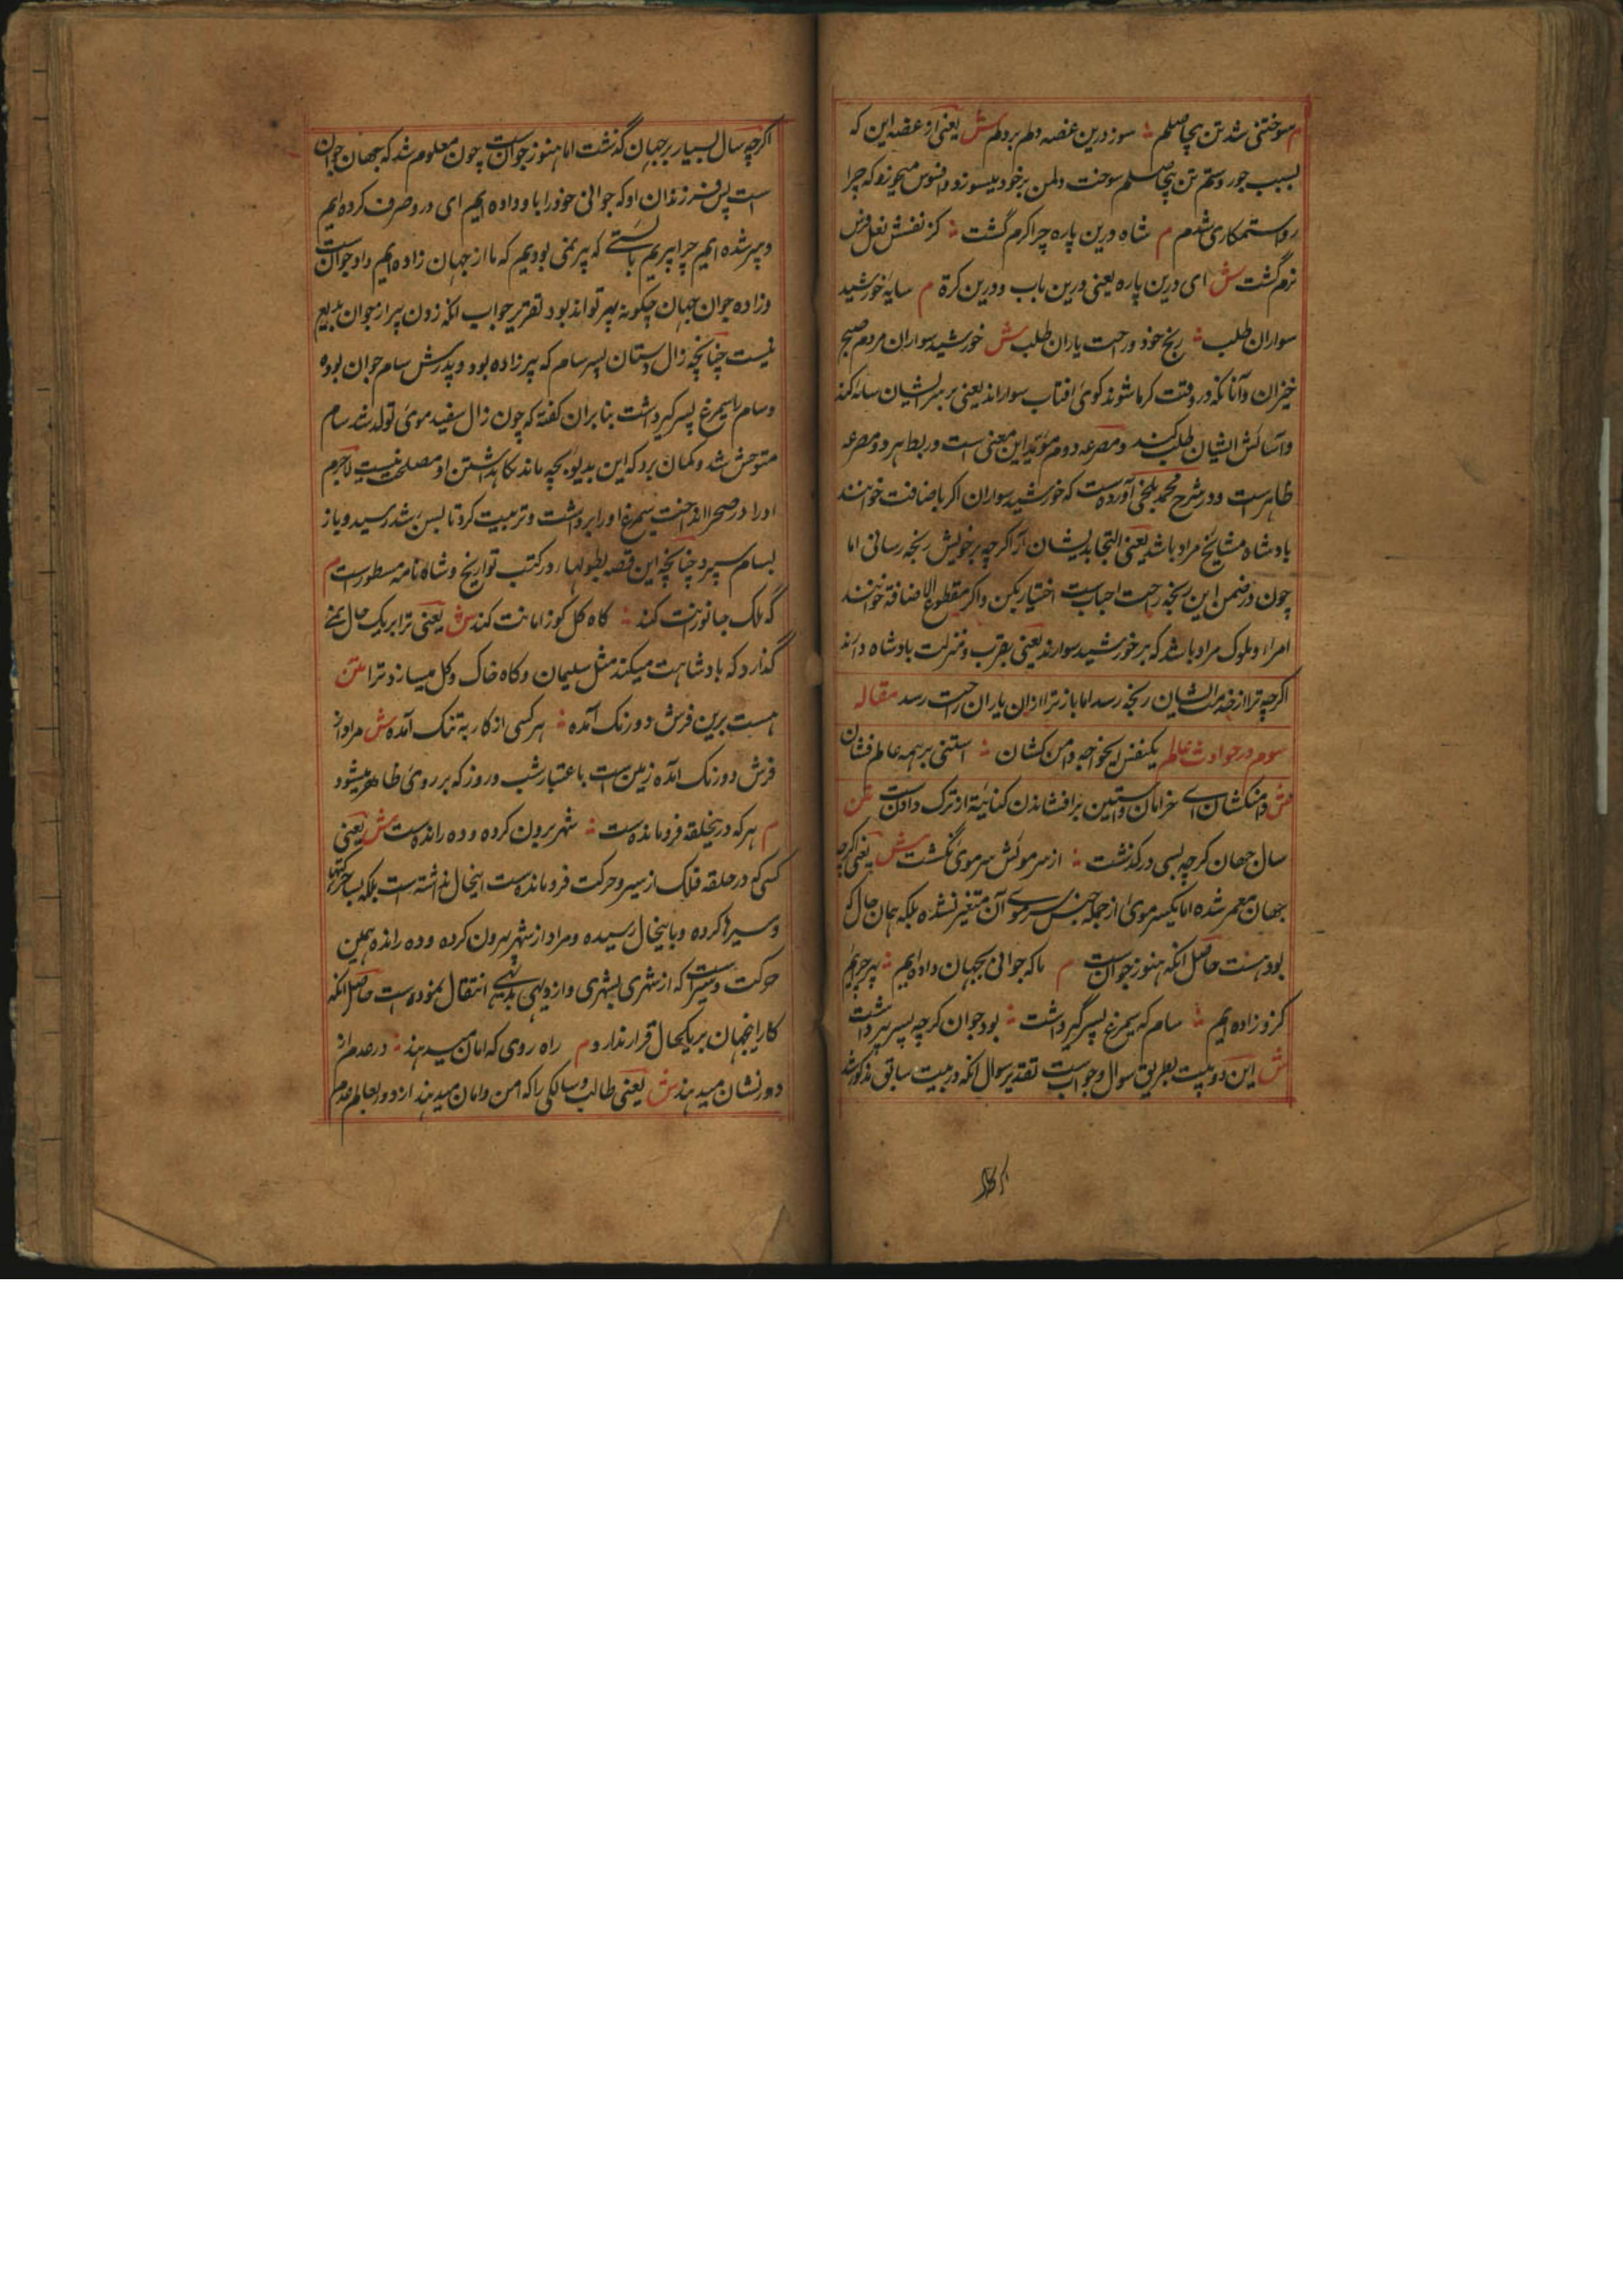 م سوختنی شد تن بیحاصلم ؞ سوز درین غصه دلم بر دلم ش یعنی از غصه این که
بسبب جور و ستم تن بیحاصلم سوخت دل من بر خود میسوزد و افسوس میخورد که چرا
روا ستمکاری شدم م شاه درین پاره چرا گرم گشت ؞ کز نفسش نعل فرس
نرم گشت ش ای درین پاره یعنی درین باب و درین کرة م سایۀ خورشید
سواران طلب ؞ رنج خود و راحت یاران طلب ش خورشید سواران مردم صبح
خیزان و آنانکه در وقت گرما شوند گوئ افتاب سواراند یعنی بر سر ایشان سایه کند
و آسائش ایشان طلب کنید و مصرعه دوم مؤید این معنی است و ربط هر دو مصرعه
ظاهرست و در شرح محمد بلخی آورده ست که خورشید سواران اکر باضافت خوانند
بادشاه مشایخ مراد باشد یعنی التجا بدیشان آر اکرچه بر خویش رنجه رسانی اما
چون در ضمن این رنجه راحت احباب ست اختیار بکن و اکر مقطوع الاضافة خوانند
امراء و ملوک مراد باشد که بر خورشید سوارند یعنی بقرب و منزلت بادشاه دارند
اکرچه ترا از خدمت ایشان رنجه رسد اما باز ترا ازان یاران راحت رسد مقاله
سوم در حوادث عالم یکنفس ایخواجه دامن کشان ؞ استنی بر همه عالم فشان
ش دامنکشان ای خرامان و استین برافشاندن کنایة از ترک دادن ست متن
سال جهان کرچه بسی درگذشت ؞ از سر مویش سر موئ نگشت ش یعنی اکرچه
جهان معمر شده اما یکسر موئ از جمله جنس سر موی آن متغیر نشده بلکه همان حال که
بود هست حاصل انکه هنوز جوان ست م ما که جوانی بجهان داده ایم ؞ پیر چرایم
کزو زاده ایم ؞ سام که سیمرغ پسر گیر داشت ؞ بود جوان کرچه پسر پیر داشت
ش این دو بیت بطریق سوال و جواب ست تقدیر سوال انکه در بیت سابق مذکور شد
اکرچه سال بسیار بر جهان گذشت اما هنوز جوان ست چون معلوم شد که جهان جوان
است پس فرزندان او که جوانی خود را باو داده ایم ای درو صرف کرده ایم
و پیر شده ایم چرا پیریم بایستی که پیر نمی بودیم که ما از جهان زاده ایم و او جوان ست
و زاده جوان جهان چگونه پیر تواند بود تقریر جواب انکه زادن پیر از جوان بدیع
نیست چنانچه زال دستان پسر سام که پیر زاده بود و پدرش سام جوان بوده
و سام را سیمرغ پسر گیر داشت بنا بران گفته که چون زال سفید موئ تولد شد سام
متوحش شد و گمان برد که این بدیو بچه ماند نگاهداشتن او مصلحت نیست لاجرم
او را در صحرا انداخت سیمرغ او را برداشت و تربیت کرد تا بسن رشد رسید و باز
بسام سپرد چنانچه این قصه بطولها در کتب تواریخ و شاه نامه مسطورست م
گه ملک جانورانت کند ؞ گاه گل کوزه گرانت کند ش یعنی ترا بر یک حال نمی
گذارد که بادشاهت میکند مثل سلیمان و گاه خاک و گل میسازد ترا متن
هست برین فرش دو رنگ آمده ؞ هر کسی از کار به تنگ آمده ش مراد از
فرش دو رنگ آمده زمین ست باعتبار شب و روز که بر روی ظاهر میشود
م هر که درینحلقه فرو مانده ست ؞ شهر برون کرده و ده رانده ست ش یعنی
کسی که در حلقه فلک از سیر و حرکت فرو مانده ست اینحال نداشته است بلکه بسا حرکتها
و سیرها کرده و باینحال رسیده و مراد از شهر بیرون کرده و ده رانده همین
حرکت و سیرست که از شهری بشهری و از دیهی بدیهی انتقال نموده است حاصل انکه
کار اینجهان بر یکحال قرار ندارد م راه روی که امان میدهند ؞ در عدم از
دور نشان میدهند ش یعنی طالب و سالکی را که امن و امان میدهند از دور بعالم عدم